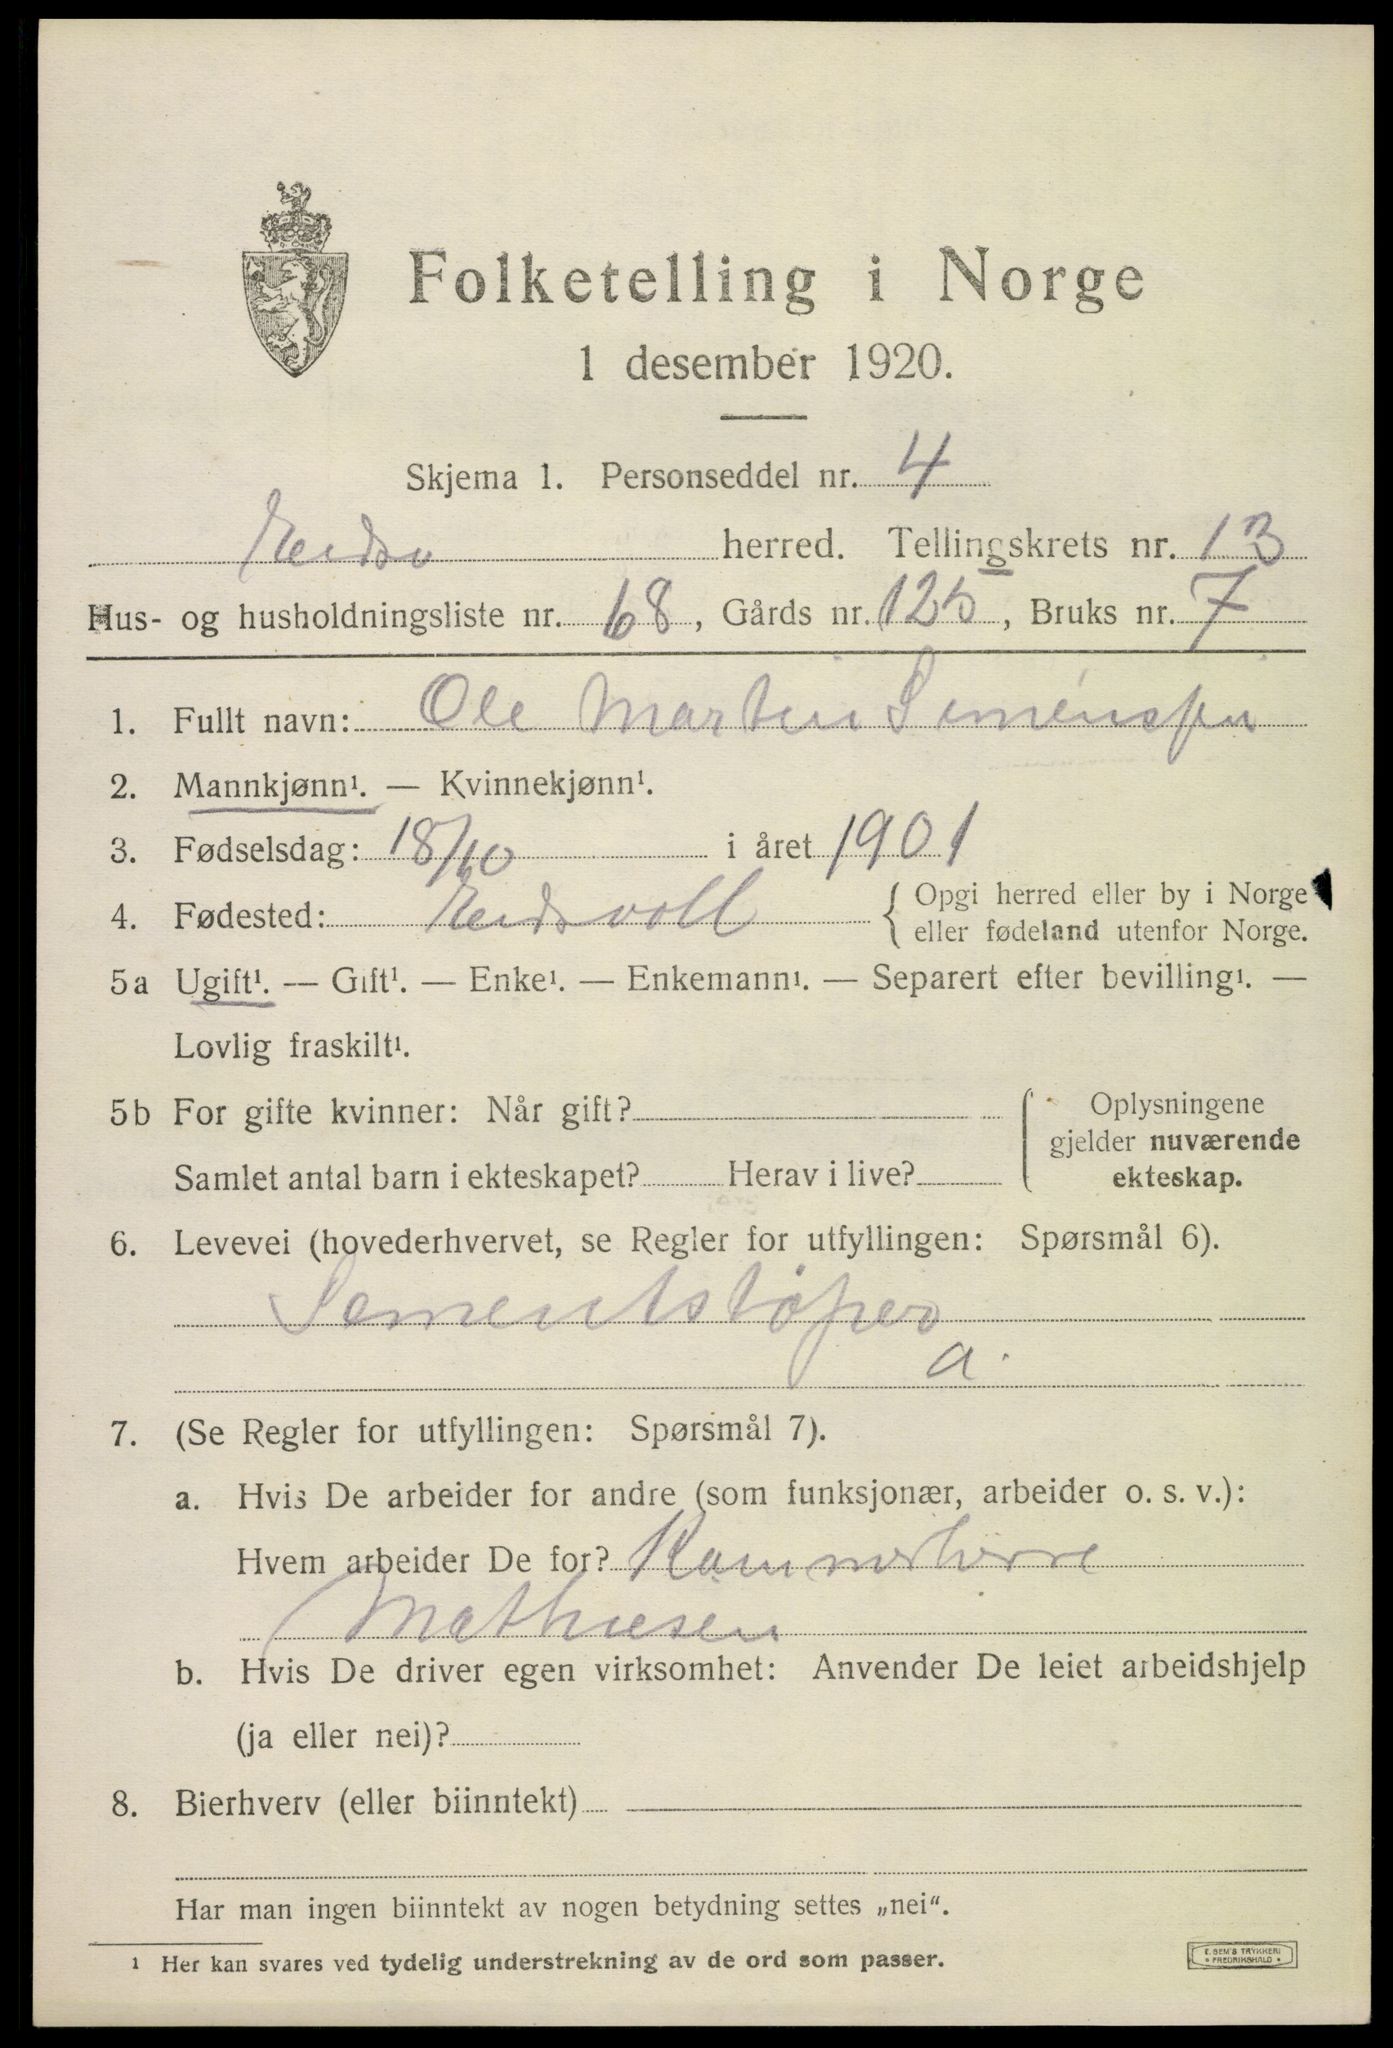 Folketelling i Norge
1 desember 1920.
Skjema 1. Personseddel nr. 4
Eidsv herred. Tellingskrets nr. 13
Hus- og husholdningsliste nr. 68, Gårds nr. 125, Bruks nr. 7
1. Fullt navn: Ole Martin Simensen
2. Mannkjønn¹. — Kvinnekjønn¹.
3. Fødselsdag: 18/10 i året 1901
4. Fødested: Eidsvoll { Opgi herred eller by i Norge
eller fødeland utenfor Norge.
5a Ugift¹. — Gift¹. — Enke¹. — Enkemann¹. — Separert efter bevilling¹. —
Lovlig fraskilt¹.
5b For gifte kvinner: Når gift? { Oplysningene
gjelder nuværende
Samlet antal barn i ekteskapet? Herav i live? ekteskap.
6. Levevei (hovederhvervet, se Regler for utfyllingen: Spørsmål 6).
Sementstøper
a.
7. (Se Regler for utfyllingen: Spørsmål 7).
a. Hvis De arbeider for andre (som funksjonær, arbeider o. s. v.):
Hvem arbeider De for? Kammerherre
Mathiesen
b. Hvis De driver egen virksomhet: Anvender De leiet arbeidshjelp
(ja eller nei)?
8. Bierhverv (eller biinntekt) —
Har man ingen biinntekt av nogen betydning settes „nei“.
¹ Her kan svares ved tydelig understrekning av de ord som passer.
E. SEM'S TRYKKERI
FREDRIKSHALD